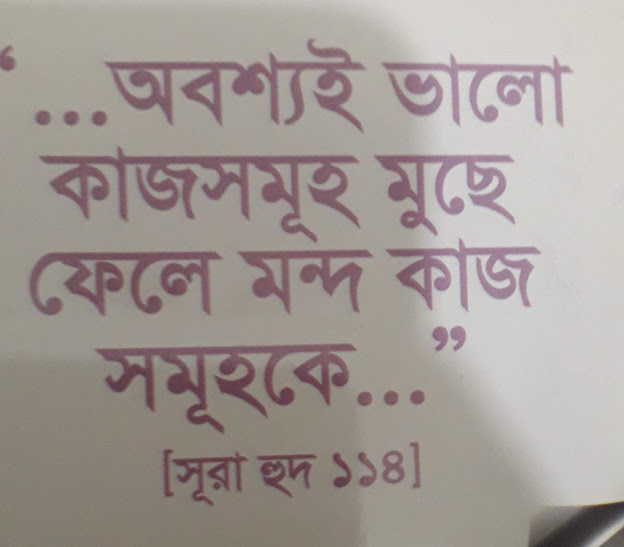 ‘...অবশ্যই ভালো
কাজসমূহ মুছে
ফেলে মন্দ কাজ
সমূহকে...”
[সূরা হুদ ১১৪]